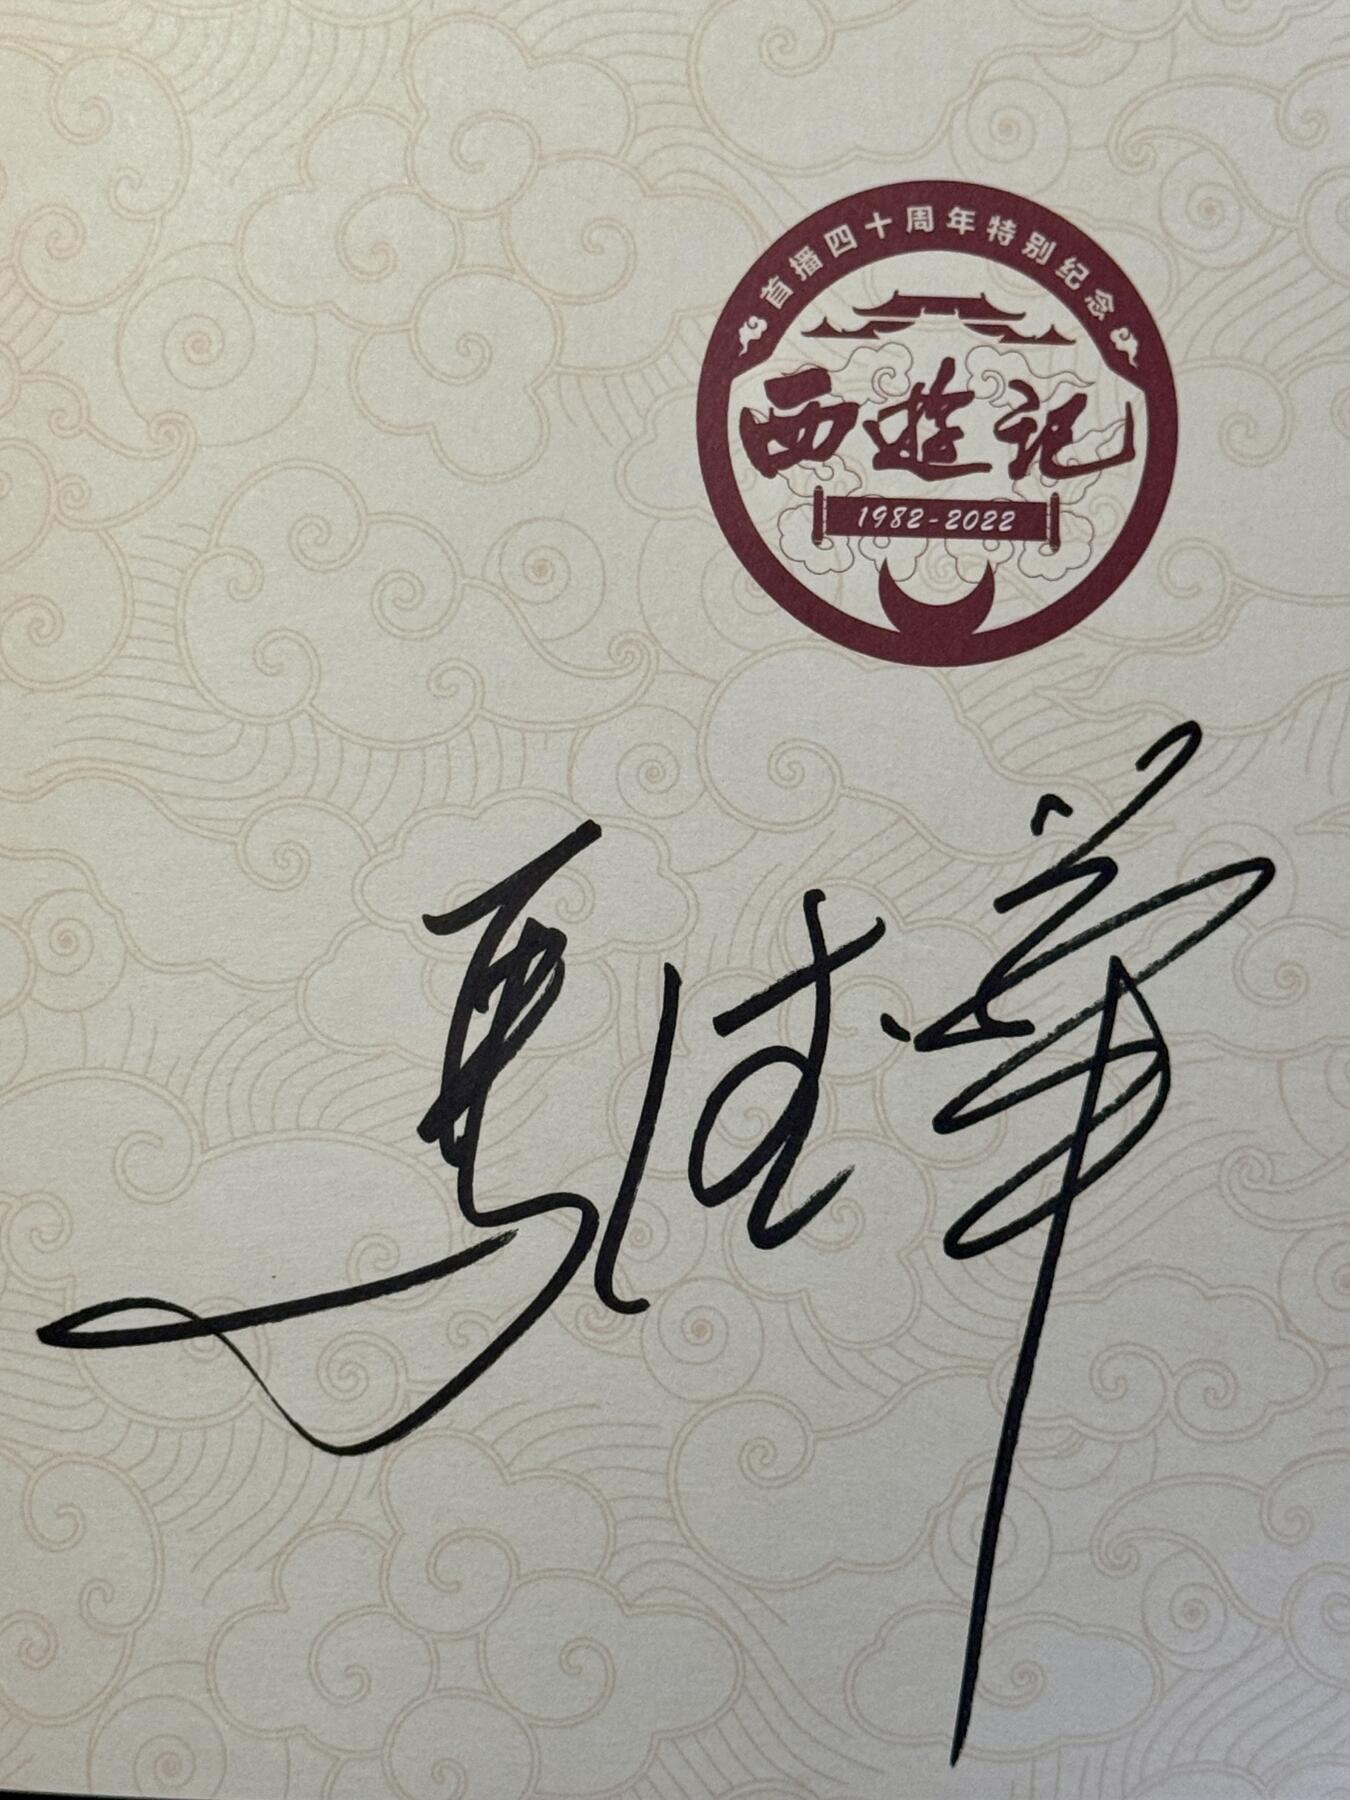 首播四十周年特别纪念
西遊记
1982-2022
馬德華